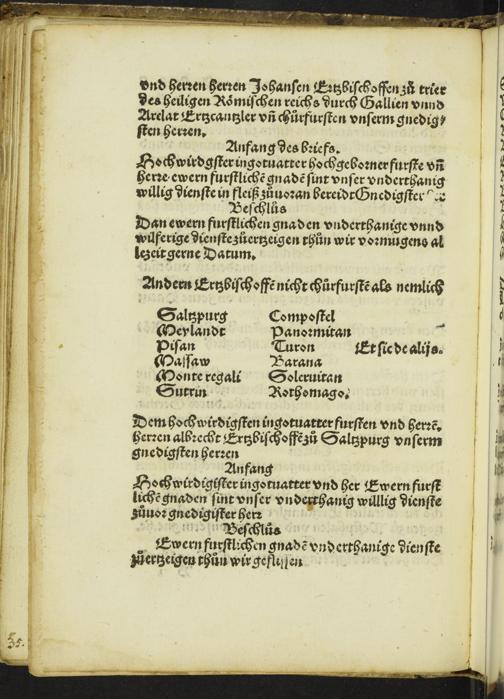 vnd herren herren Johansen Ertzbischoffen zů trier
des heiligen Römischen reichs durch Gallien vnnd
Arelat Ertzcantzler vñ chürfursten vnserm gnedig⸗
sten herren.
Anfang des briefs.
Hochwirdgster ingotuatter hochgeborner furste vñ
herre ewern furstlichē gnadē sint vnser vnderthanig
willig dienste in fleiß zůuoran bereidt Gnedigster ⁊c
Beschlůs
Dan ewern furstlichen gnaden vnderthanige vnnd
wilferige dienste zůertzeigen thůn wir vormugens al
lezeit gerne Datum.
Andern Ertzbischoffē nicht chürfurstē als nemlich
Saltzpurg Compostel
Meylandt Panormitan
Pisan Turon Et sic de alijs.
Massaw Barana
Monte regali Soleruitan
Sutrin Rothomago.
Dem hochwirdigsten ingotuatter fursten vnd herrē.
herren albrecht Ertzbischoffē zů Saltzpurg vnserm
gnedigsten herren
Anfang
Hochwirdigister ingotuatter vnd her Ewern furst
lichē gnaden sint vnser vnderthanig willlig dienste
zůuor gnedigister herr
Beschlůs
Ewern furstlichen gnadē vnderthanige dienste
zůertzeigen thůn wir geflissen
35.